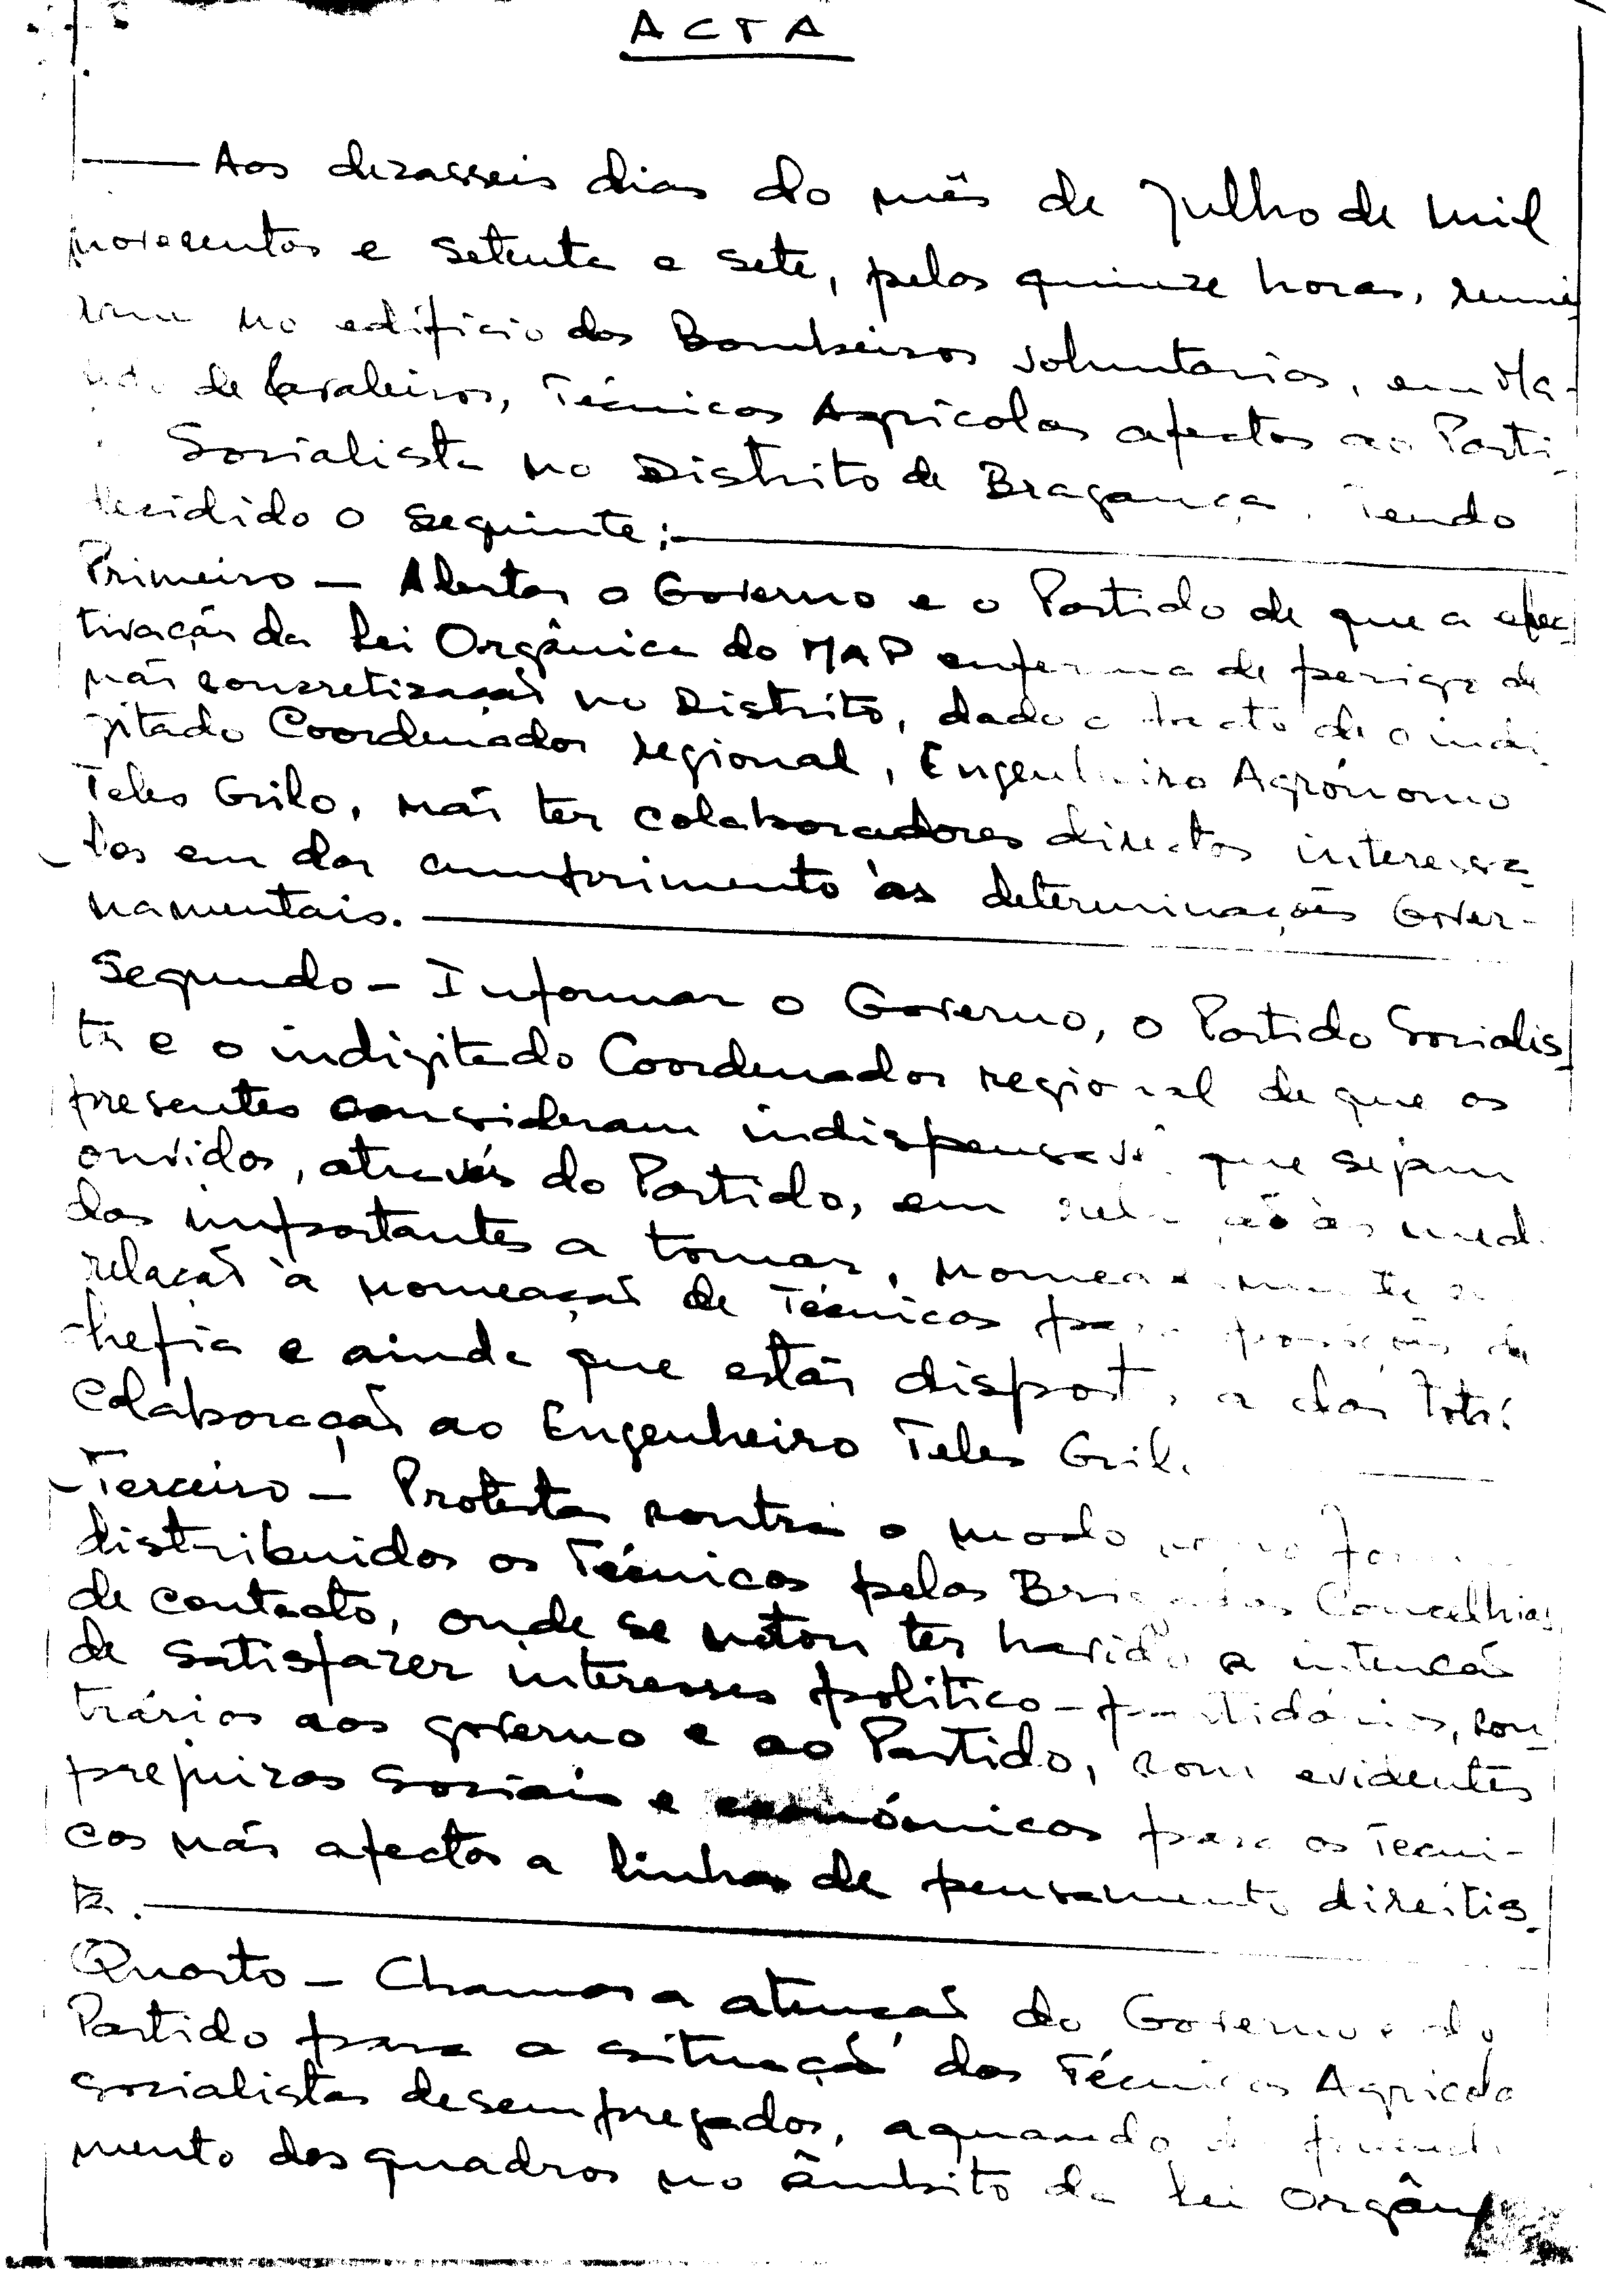 ACTA
Aos dezasseis dias do mês de Julho de mil
novecentos e setenta e sete, pelas quinze horas, reuni-
ram no edifício dos Bombeiros voluntários, em Ma-
de Cavaleiros, Técnicos Agrícolas afectos ao Parti-
Socialista no Distrito de Bragança. Tendo
decidido o seguinte:
Primeiro — Alertar o Governo e o Partido de que a efec-
tivação da Lei Orgânica do MAP enferma de perigo de
não concretização no Distrito, dado o facto de o indi-
gitado Coordenador regional, Engenheiro Agrónomo
Teles Grilo, não ter colaboradores directos interessa-
dos em dar cumprimento às determinações Gover-
namentais.
Segundo — Informar o Governo, o Partido Socialis-
ta e o indigitado Coordenador regional de que os
presentes consideram indispensável que sejam
ouvidos, através do Partido, em relação às medi
das importantes a tomar, nomeadamente
relação à nomeação de Técnicos para posições de
chefia e ainda que estão dispostos a dar total
colaboração ao Engenheiro Teles Grilo
Terceiro — Protestar contra o modo como foram
distribuidos os Técnicos pelas Brigadas Concelhias
de contacto, onde se notou ter havido a intenção
de satisfazer interesses político-partidários, con-
trários aos governo e ao Partido, com evidentes
prejuizos sociais e económicos para os Tecni-
cos não afectos a linhas de pensamento direitis-
ta.
Quarto — Chamar a atenção do Governo e do
Partido para a situação dos Técnicos Agricola
socialistas desempregados, aquando do preenchi
mento dos quadros no âmbito da Lei Orgâni